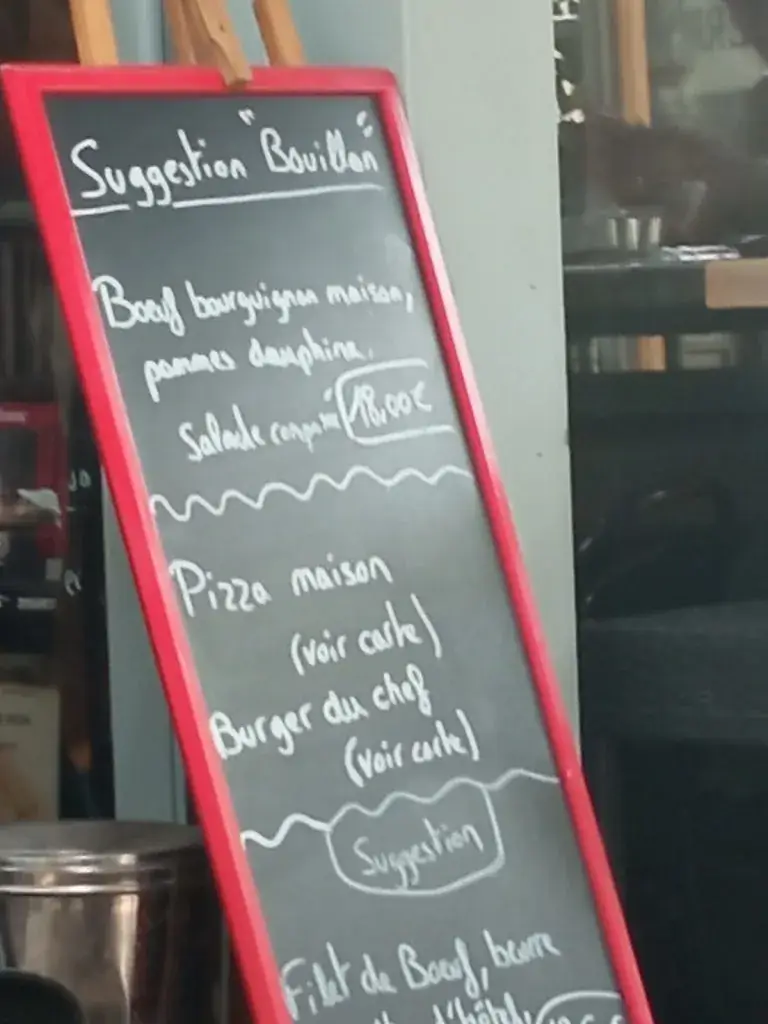 Suggestion "Bouillon"
Boeuf bourguignon maison,
pommes dauphine.
Salade 18,00€
Pizza maison
(voir carte)
Burger du chef
(voir carte)
Suggestion
Filet de Boeuf, beurre
d'hôtel,